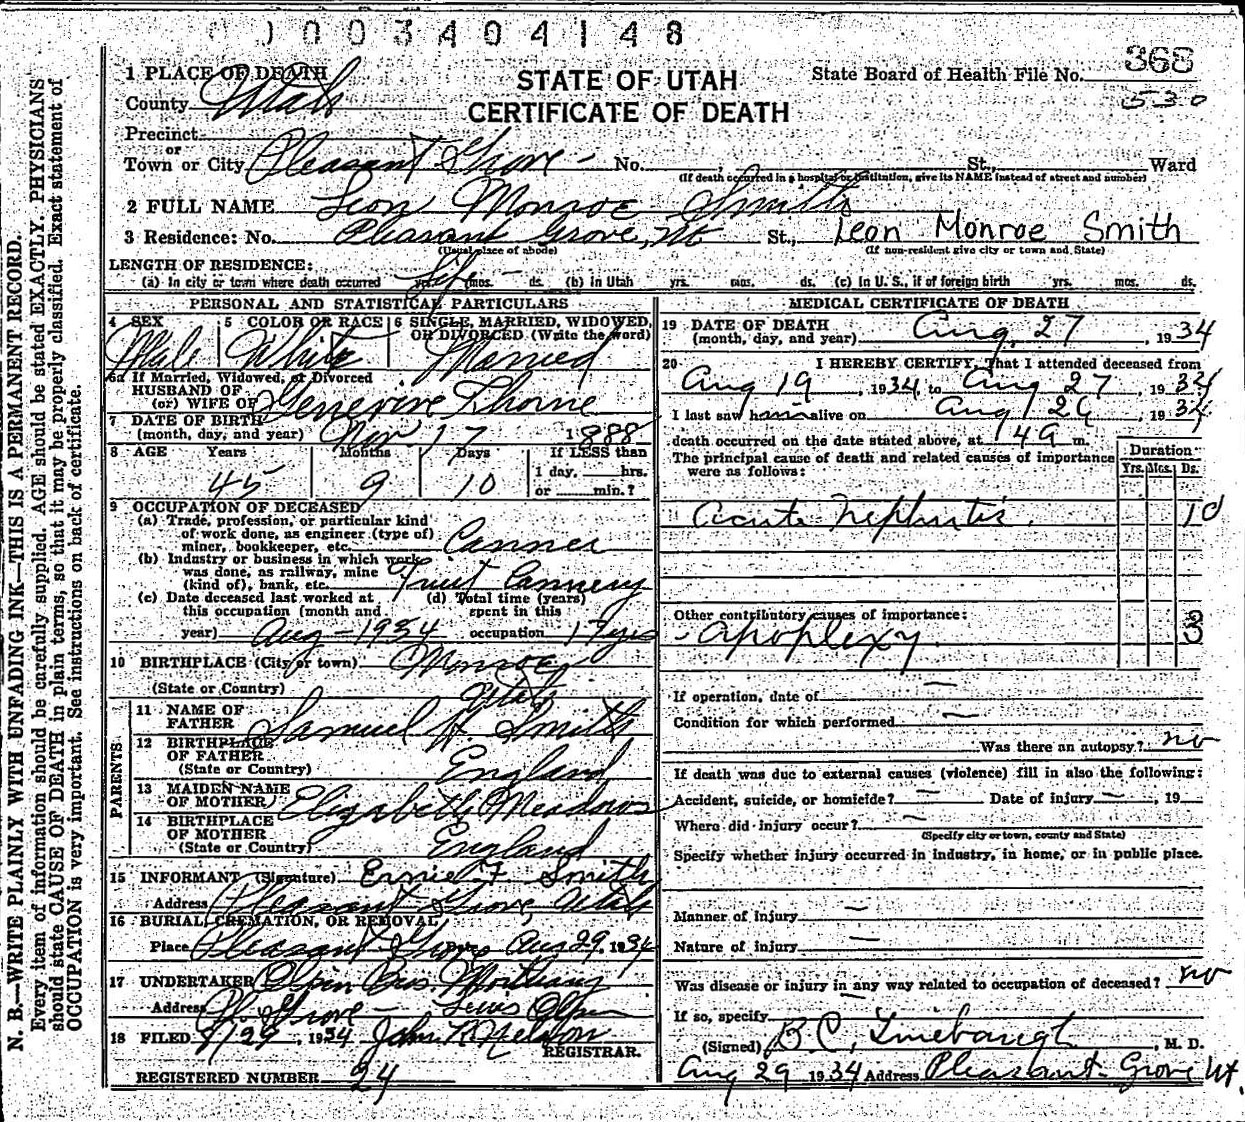 0 0 0 3 4 0 4 1 4 8
1 PLACE OF DEATH
County Utah
STATE OF UTAH
CERTIFICATE OF DEATH
State Board of Health File No. 368
530
Precinct
or
Town or City Pleasant Grove - No. , St., Ward
(If death occurred in a hospital or institution, give its NAME instead of street and number)
2 FULL NAME Leon Monroe Smith
3 Residence: No. Pleasant Grove, Ut St., Leon Monroe Smith
(Usual place of abode) (If non-resident give city or town and State)
LENGTH OF RESIDENCE:
(a) In city or town where death occurred Life yrs. mos. ds. (b) in Utah yrs. mos. ds. (c) In U.S., if of foreign birth yrs. mos. ds.
PERSONAL AND STATISTICAL PARTICULARS
4 SEX Male
5 COLOR OR RACE White
6 SINGLE, MARRIED, WIDOWED, OR DIVORCED (Write the word) Married
6a If Married, Widowed, or Divorced
HUSBAND OF
(or) WIFE OF Genevive Thorne
7 DATE OF BIRTH
(month, day, and year) Nov. 17 1888
8 AGE Years Months Days If LESS than
45 9 10 1 day, hrs.
or min.?
9 OCCUPATION OF DECEASED
(a) Trade, profession, or particular kind
of work done, as engineer (type of)
miner, bookkeeper, etc. Canner
(b) Industry or business in which work
was done, as railway, mine
(kind of), bank, etc. Fruit Cannery
(c) Date deceased last worked at
this occupation (month and
year) Aug - 1934
(d) Total time (years)
spent in this
occupation 17 yrs
10 BIRTHPLACE (City or town) Monroe
(State or Country) Utah
PARENTS
11 NAME OF
FATHER Samuel H. Smith
12 BIRTHPLACE
OF FATHER
(State or Country) England
13 MAIDEN NAME
OF MOTHER Elizabeth Meadows
14 BIRTHPLACE
OF MOTHER
(State or Country) England
15 INFORMANT (Signature) Ernie F Smith
Address Pleasant Grove, Utah
16 BURIAL, CREMATION, OR REMOVAL
Place Pleasant Grove Date Aug 29, 1934
17 UNDERTAKER Olpin Bros. Mortuary
Address Pl. Grove - Lewis Olpin
18 FILED 8/29, 1934 John R Nelson
REGISTRAR.
REGISTERED NUMBER 24
MEDICAL CERTIFICATE OF DEATH
19 DATE OF DEATH
(month, day, and year) Aug. 27, 1934
20 I HEREBY CERTIFY, That I attended deceased from
Aug 19, 1934, to Aug 27, 1934
I last saw him alive on Aug 26, 1934
death occurred on the date stated above, at m.
The principal cause of death and related causes of importance
were as follows:
Duration
Yrs. Mos. Ds.
Acute Nephritis. 10
Other contributory causes of importance:
- Apoplexy 3
If operation, date of —
Condition for which performed —
Was there an autopsy? no
If death was due to external causes (violence) fill in also the following:
Accident, suicide, or homicide? — Date of injury —, 19
Where did injury occur? —
(Specify city or town, county and State)
Specify whether injury occurred in industry, in home, or in public place.
Manner of injury —
Nature of injury —
Was disease or injury in any way related to occupation of deceased? no
If so, specify —
(Signed) B. C. Linebaugh, M. D.
Aug 29 1934 Address Pleasant Grove Ut.
N. B.—WRITE PLAINLY WITH UNFADING INK—THIS IS A PERMANENT RECORD.
Every item of information should be carefully supplied. AGE should be stated EXACTLY. PHYSICIANS
should state CAUSE OF DEATH in plain terms, so that it may be properly classified. Exact statement of
OCCUPATION is very important. See instructions on back of certificate.